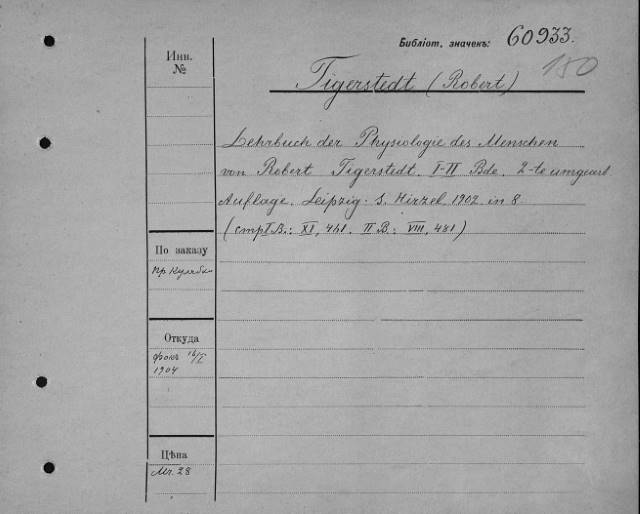 Библіот. значекъ: 60933.
150
Инв.
№
Tigerstedt (Robert)
Lehrbuch der Physiologie des Menschen
von Robert Tigerstedt. I-II Bde. 2-te umgearb.
Auflage. Leipzig. S. Hirzel 1902 in 8
(стр I B.: XI, 461. II B: VIII, 481)
По заказу
пр. Кулябки
Откуда
фокъ 16/I
1904
Цѣна
Mr. 28